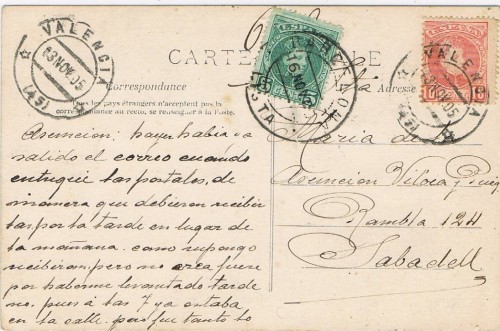 CARTE POSTALE
Correspondance
Tous les pays étrangers n'acceptent pas la
correspondance au recto, se renseigner à la Poste.
Adresse
VALENCIA
NOV 05
(45)
BARCELONA
16 NOV 05
ESPAÑA
VALENCIA
Asuncion: hayer habia ya
salido el correo cuando
entregué las postales, de
manera que debieron recibir
las por la tarde en lugar de
la mañana. como supongo
recibiran, pero no crea fuere
por haberme levantado tarde
no, pues á las 7 ya estaba
en la calle. pero fue tanto lo
Maria de
Asuncion Viloca y Puig
Rambla 124
Sabadell